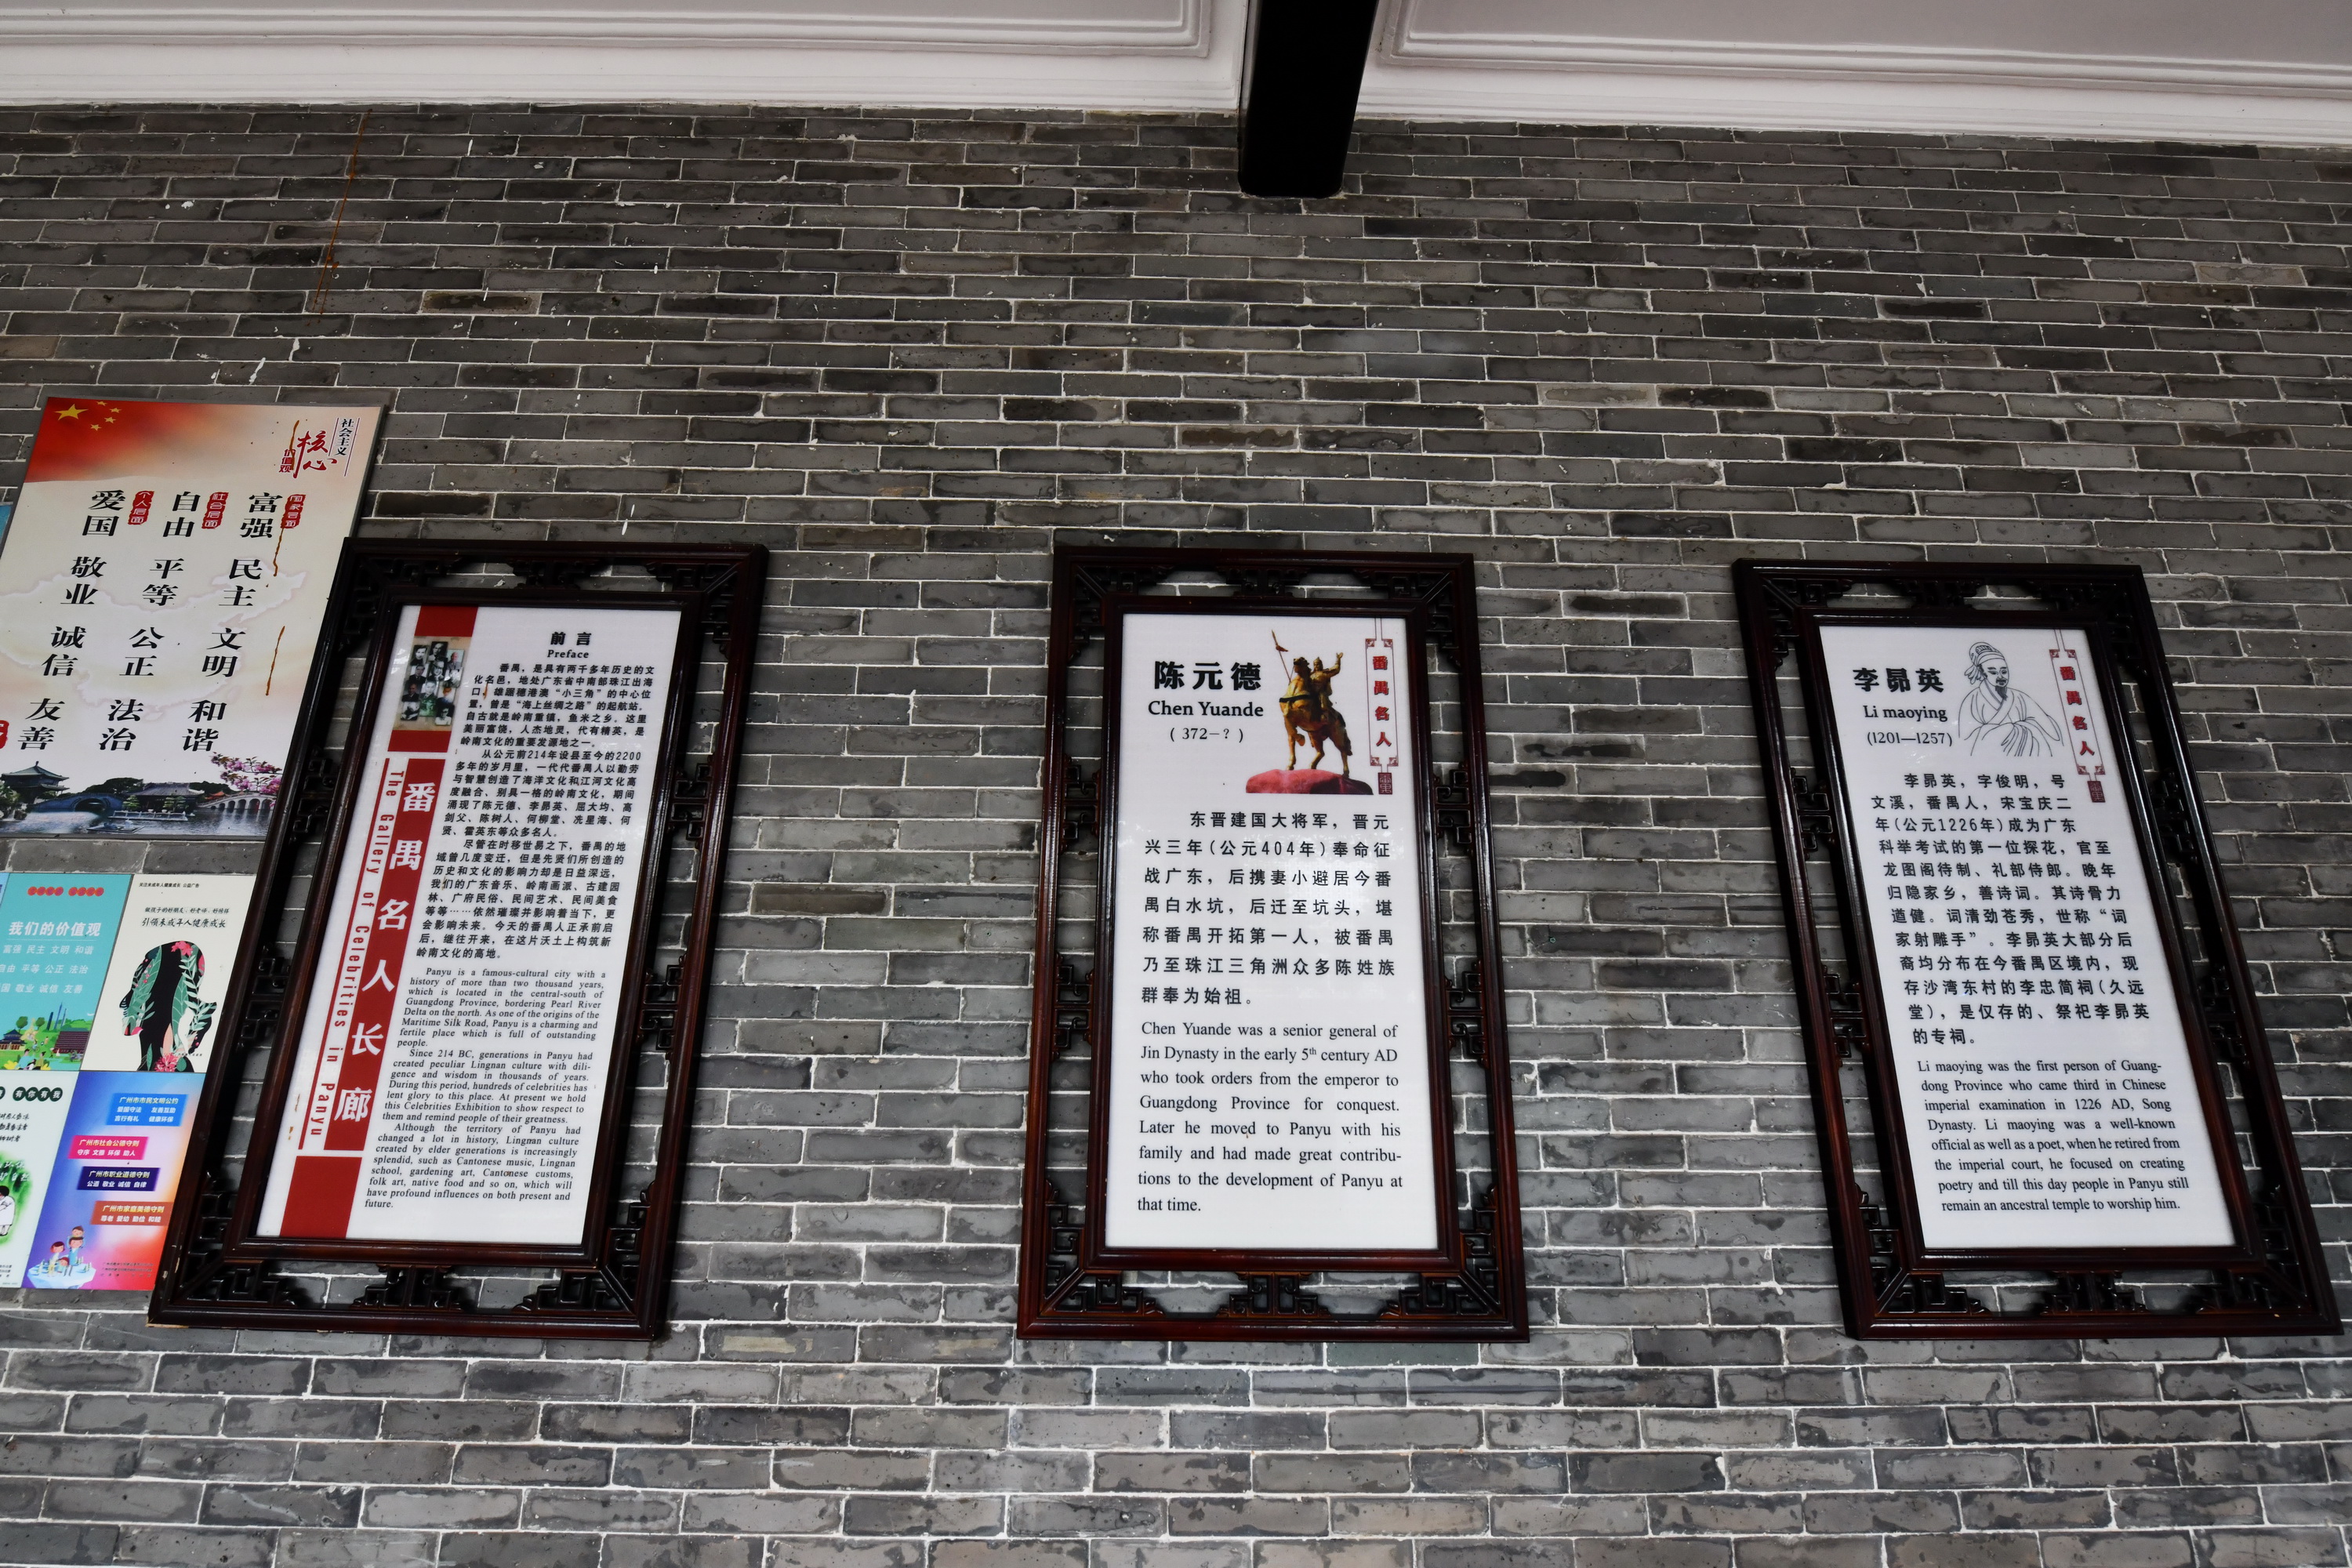 社会主义
核心
价值观
国家层面
富强
民主
文明
和谐
社会层面
自由
平等
公正
法治
个人层面
爱国
敬业
诚信
友善
我们的价值观
富强 民主 文明 和谐
自由 平等 公正 法治
爱国 敬业 诚信 友善
引领未成年人健康成长
广州市市民文明公约
爱国守法 友善互助
言行有礼 健康环保
广州市社会公德守则
守序 文雅 环保 助人
广州市职业道德守则
公道 敬业 诚信 自律
广州市家庭美德守则
尊老 爱幼 勤俭 和睦
番禺名人长廊
The Gallery of Celebrities in Panyu
前言
Preface
番禺，是具有两千多年历史的文
化名邑，地处广东省中南部珠江出海
口，雄踞穗港澳“小三角”的中心位
置，曾是“海上丝绸之路”的起航站。
自古就是岭南重镇，鱼米之乡。这里
美丽富饶，人杰地灵，代有精英，是
岭南文化的重要发源地之一。
从公元前214年设县至今的2200
多年的岁月里，一代代番禺人以勤劳
与智慧创造了海洋文化和江河文化高
度融合、别具一格的岭南文化，期间
涌现了陈元德、李昴英、屈大均、高
剑父、陈树人、何柳堂、冼星海、何
贤、霍英东等众多名人。
尽管在时移世易之下，番禺的地
域曾几度变迁，但是先贤们所创造的
历史和文化的影响力却是日益深远，
我们的广东音乐、岭南画派、古建园
林、广府民俗、民间艺术、民间美食
等等……依然璀璨并影响着当下，更
会影响未来。今天的番禺人正承前启
后，继往开来，在这片沃土上构筑新
岭南文化的高地。
Panyu is a famous-cultural city with a
history of more than two thousand years,
which is located in the central-south of
Guangdong Province, bordering Pearl River
Delta on the north. As one of the origins of the
Maritime Silk Road, Panyu is a charming and
fertile place which is full of outstanding
people.
Since 214 BC, generations in Panyu had
created peculiar Lingnan culture with dili-
gence and wisdom in thousands of years.
During this period, hundreds of celebrities has
lent glory to this place. At present we hold
this Celebrities Exhibition to show respect to
them and remind people of their greatness.
Although the territory of Panyu had
changed a lot in history, Lingman culture
created by elder generations is increasingly
splendid, such as Cantonese music, Lingnan
school, gardening art, Cantonese customs,
folk art, native food and so on, which will
have profound influences on both present and
future.
陈元德
Chen Yuande
(372－?)
番禺名人
东晋建国大将军，晋元
兴三年(公元404年)奉命征
战广东，后携妻小避居今番
禺白水坑，后迁至坑头，堪
称番禺开拓第一人，被番禺
乃至珠江三角洲众多陈姓族
群奉为始祖。
Chen Yuande was a senior general of
Jin Dynasty in the early 5th century AD
who took orders from the emperor to
Guangdong Province for conquest.
Later he moved to Panyu with his
family and had made great contribu-
tions to the development of Panyu at
that time.
李昴英
Li maoying
(1201—1257)
番禺名人
李昴英，字俊明，号
文溪，番禺人，宋宝庆二
年(公元1226年)成为广东
科举考试的第一位探花，官至
龙图阁待制、礼部侍郎。晚年
归隐家乡，善诗词。其诗骨力
遒健。词清劲苍秀，世称“词
家射雕手”。李昴英大部分后
裔均分布在今番禺区境内，现
存沙湾东村的李忠简祠(久远
堂)，是仅存的、祭祀李昴英
的专祠。
Li maoying was the first person of Guang-
dong Province who came third in Chinese
imperial examination in 1226 AD, Song
Dynasty. Li maoying was a well-known
official as well as a poet, when he retired from
the imperial court, he focused on creating
poetry and till this day people in Panyu still
remain an ancestral temple to worship him.